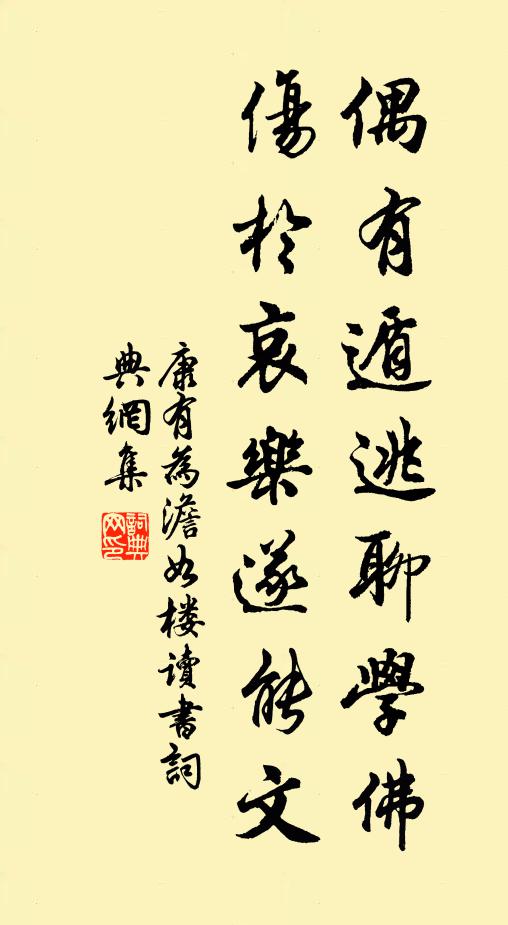 偶有遁逃聊學佛
傷於哀樂遂能文
康有為澹如楼讀書詞
典網集
詞典網印